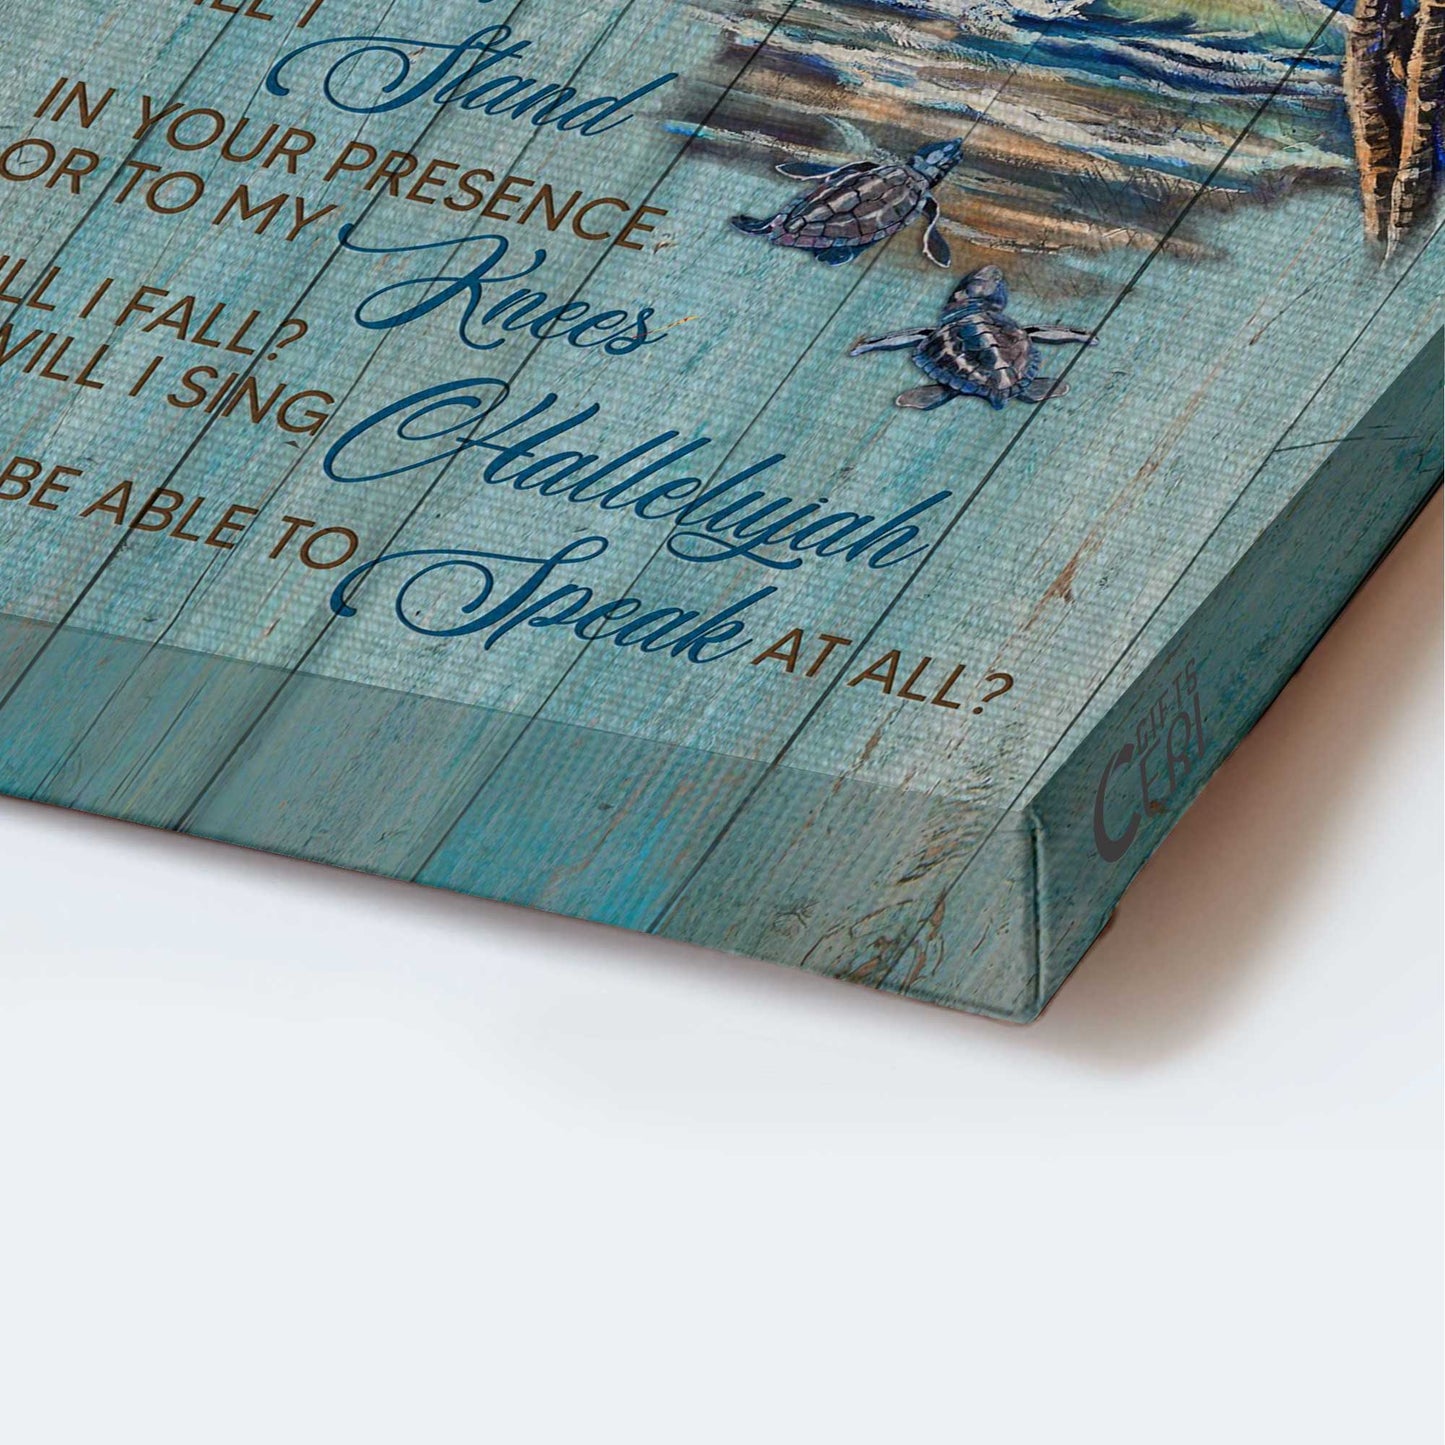 Stand
IN YOUR PRESENCE,
OR TO MY Knees
I FALL?
I SING Hallelujah
BE ABLE TO Speak AT ALL?
GIFTS
CERI